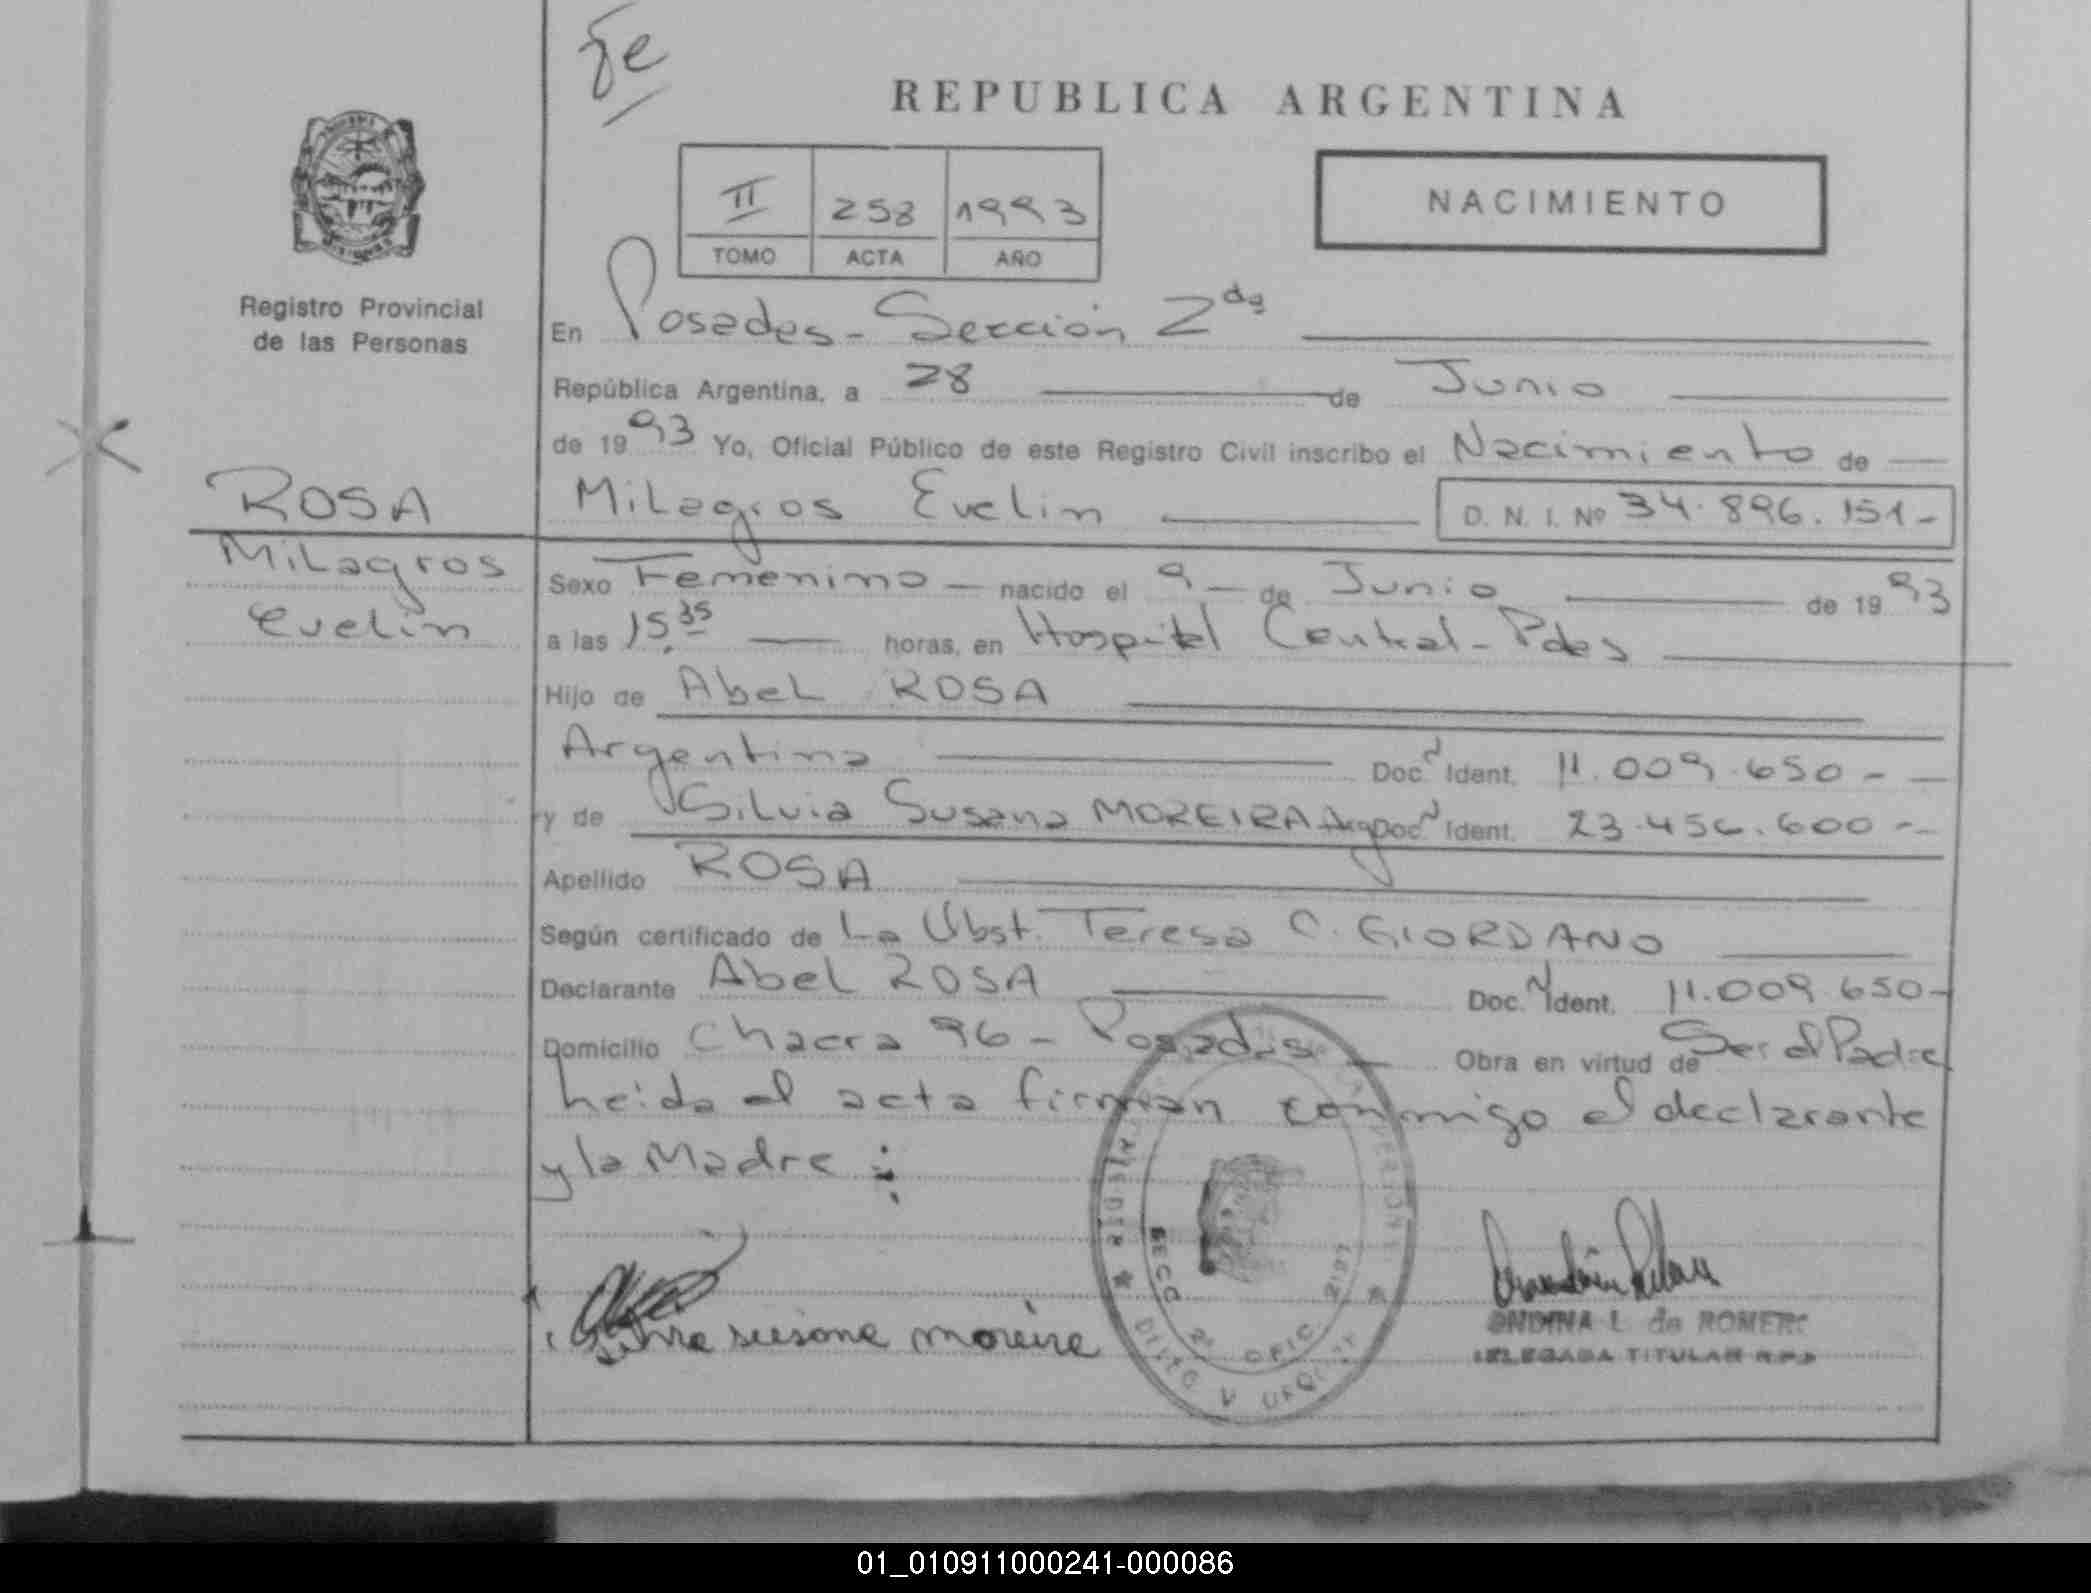 fe
REPUBLICA ARGENTINA
II 258 1993
TOMO ACTA AÑO
NACIMIENTO
Registro Provincial
de las Personas
En Posadas - Sección 2da
República Argentina, a 28 de Junio
de 1993 Yo, Oficial Público de este Registro Civil inscribo el Nacimiento de
ROSA
Milagros
Evelin
Milagros Evelin D. N. I. Nº 34.896.151-
Sexo Femenino nacido el 9 de Junio de 1993
a las 15.35 horas, en Hospital Central - Pdas
Hijo de Abel ROSA
Argentina Doc. Ident. 11.009.650-
y de Silvia Susana MOREIRA Arg Doc. Ident. 23.456.600-
Apellido ROSA
Según certificado de La Obst. Teresa C. GIORDANO
Declarante Abel ROSA Doc. Ident. 11.009.650-
Domicilio Chacra 96 - Posadas Obra en virtud de Ser el Padre
heida el acta firman conmigo el declarante
y la Madre :
susana moreira
SECC 2ª OFIC.
ONDINA L. de ROMERO
DELEGADA TITULAR R.P.P.
01_010911000241-000086